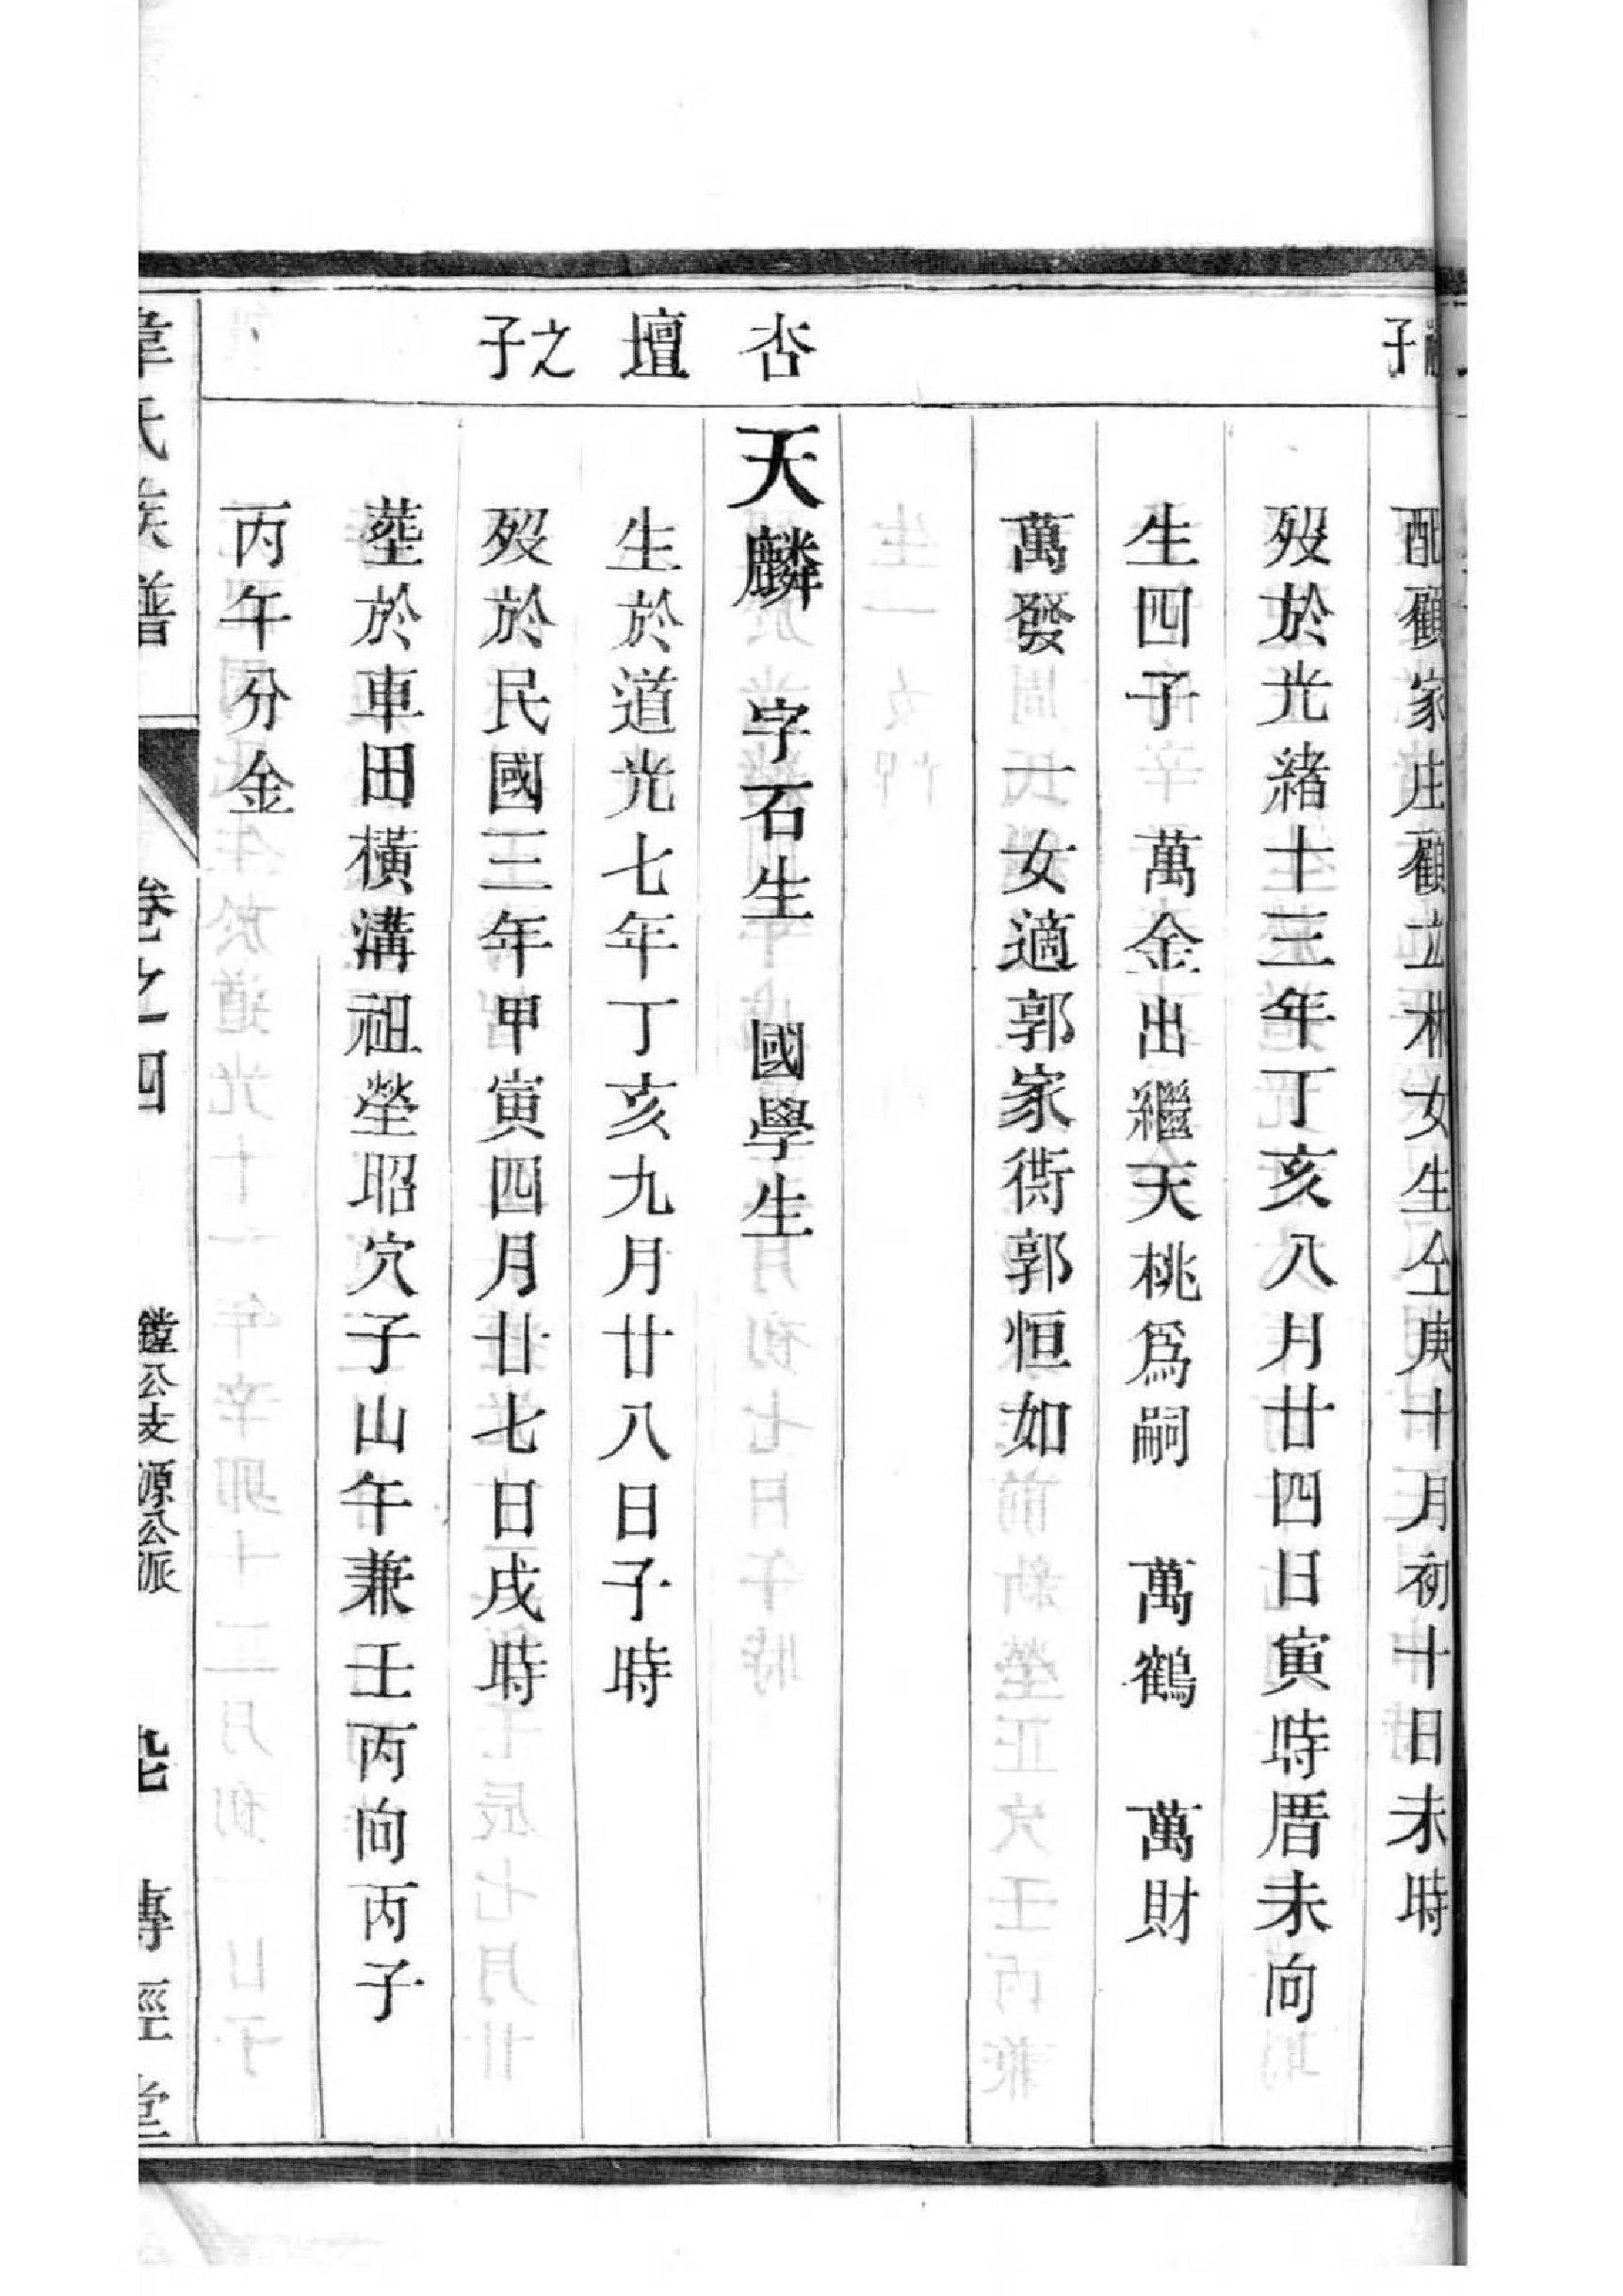 子
配顧家庄顧立林女生仝庚十月初十日未時
歿於光緒十三年丁亥八月廿四日寅時厝未向
生四子 萬金出繼天桃爲嗣 萬鶴 萬財
萬發 一女適郭家衖郭恒如
杏壇之子
天麟 字石生 國學生
生於道光七年丁亥九月廿八日子時
歿於民國三年甲寅四月廿七日戌時
塟於車田橫溝祖塋昭穴子山午兼壬丙向丙子
丙午分金
韋氏族譜 卷之四 鏜公支源公派 傳經堂